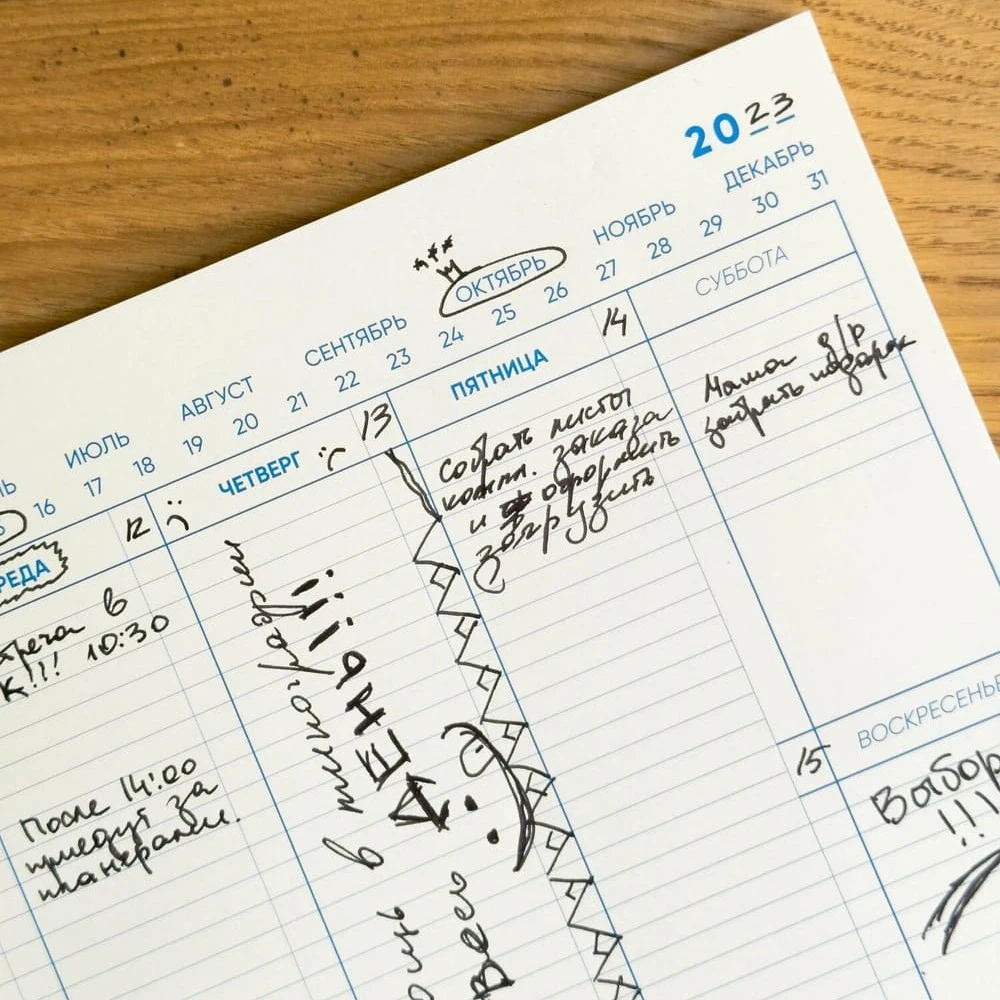 2023
ИЮЛЬ АВГУСТ СЕНТЯБРЬ ОКТЯБРЬ НОЯБРЬ ДЕКАБРЬ
16 17 18 19 20 21 22 23 24 25 26 27 28 29 30 31
РЕДА 12
в
10:30
После 14:00
приедут за
планерами.
ЧЕТВЕРГ 13
в типографии
ДЕНЬ!!!
Весь
ПЯТНИЦА 14
Собрать листы
компл. заказа
и оформить
загрузить
СУББОТА
Мама д/р
забрать подарок
15 ВОСКРЕСЕНЬЕ
Выбор
!!!